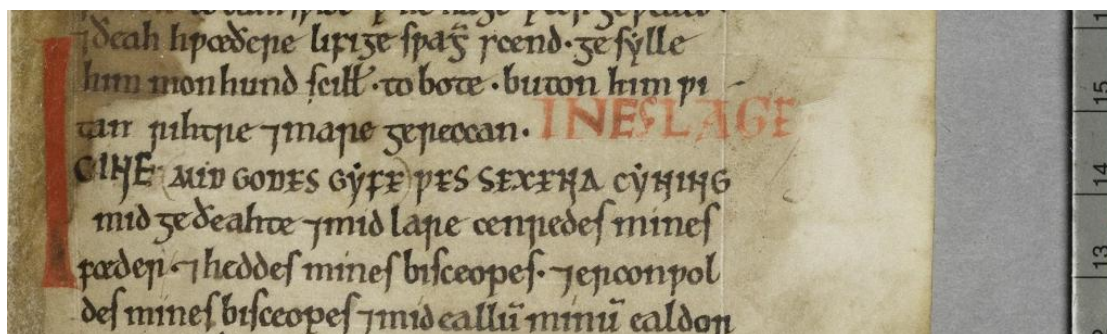 ⁊ðeah hƿæðere lifige sƿa g̅ scend · ge sylle
him mon hund scill̅ · to bote · buton him ƿi
tan rihtre ⁊mare gereccan · INES LAGE
IC INE MID GODES GẎFE ǷES SEXENA CẎNING
mid geðeahte ⁊mid lare cenredes mines
fæder · ⁊heddes mines bisceopes · ⁊erconƿol
des mines bisceopes ⁊mid eallū minū ealdor